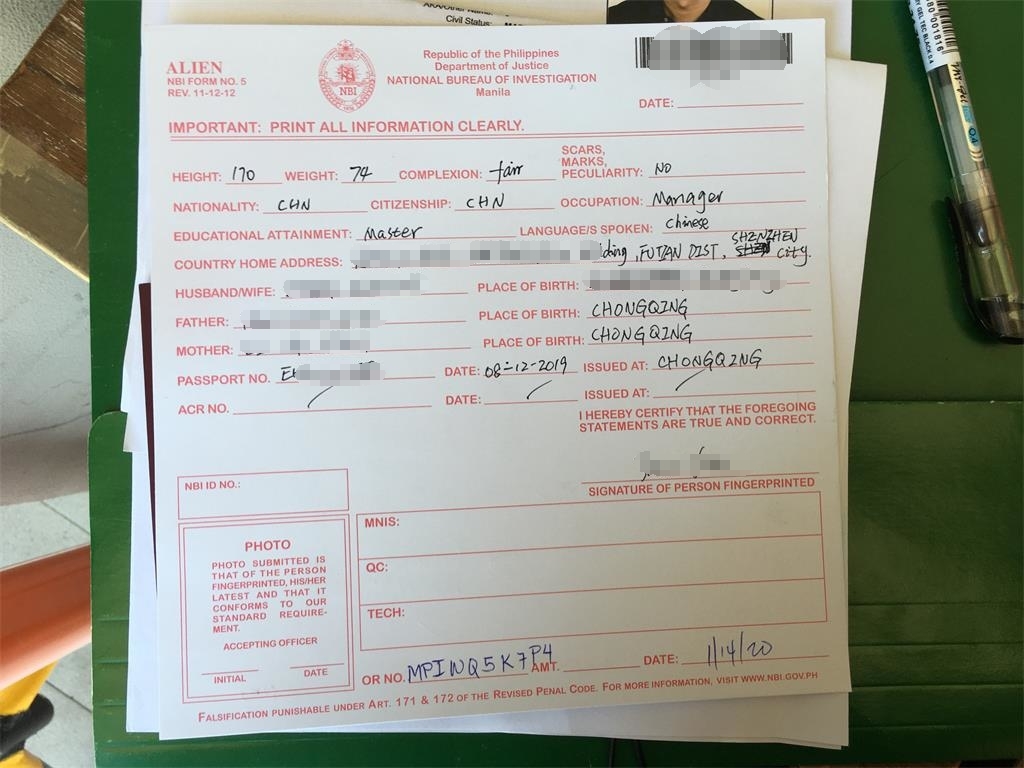 Civil Status:
ALIEN
NBI FORM NO. 5
REV. 11-12-12
NBI
Republic of the Philippines
Department of Justice
NATIONAL BUREAU OF INVESTIGATION
Manila
DATE:
IMPORTANT: PRINT ALL INFORMATION CLEARLY.
HEIGHT: 170 WEIGHT: 74 COMPLEXION: fair SCARS, MARKS, PECULIARITY: NO
NATIONALITY: CHN CITIZENSHIP: CHN OCCUPATION: Manager
EDUCATIONAL ATTAINMENT: Master LANGUAGE/S SPOKEN: Chinese
COUNTRY HOME ADDRESS: lding, FUTIAN DIST, SHENZHEN city.
HUSBAND/WIFE: PLACE OF BIRTH:
FATHER: PLACE OF BIRTH: CHONGQING
MOTHER: PLACE OF BIRTH: CHONGQING
PASSPORT NO. E DATE: 08-12-2019 ISSUED AT: CHONGQING
ACR NO. / DATE: / ISSUED AT: /
I HEREBY CERTIFY THAT THE FOREGOING
STATEMENTS ARE TRUE AND CORRECT.
SIGNATURE OF PERSON FINGERPRINTED
NBI ID NO.:
PHOTO
PHOTO SUBMITTED IS
THAT OF THE PERSON
FINGERPRINTED, HIS/HER
LATEST AND THAT IT
CONFORMS TO OUR
STANDARD REQUIRE-
MENT.
ACCEPTING OFFICER
INITIAL DATE
MNIS:
QC:
TECH:
OR NO. MPINQ5K7P4 AMT. DATE: 1/14/20
FALSIFICATION PUNISHABLE UNDER ART. 171 & 172 OF THE REVISED PENAL CODE. FOR MORE INFORMATION, VISIT WWW.NBI.GOV.PH